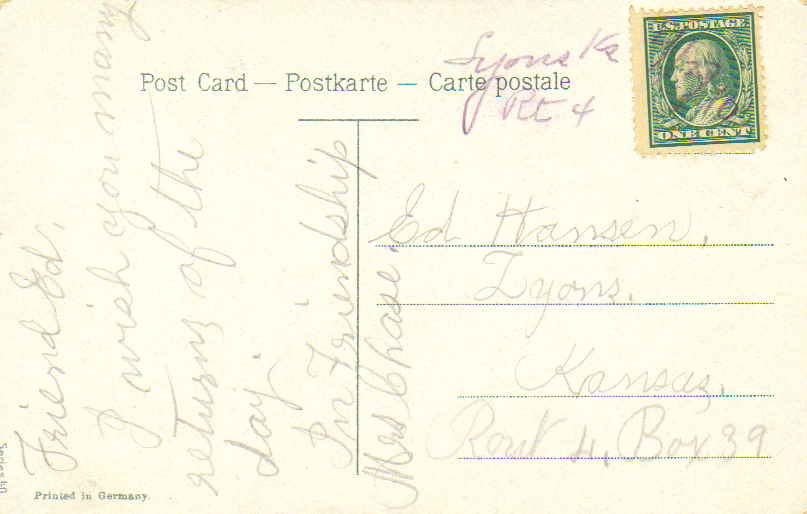 Post Card — Postkarte — Carte postale
Lyons Ks
Rt 4
U.S. POSTAGE
ONE CENT
Friend Ed,
I wish you many
returns of the
day.
In Friendship
Mrs Chase.
Ed Hansen,
Lyons,
Kansas,
Rout 4, Box 39
Printed in Germany.